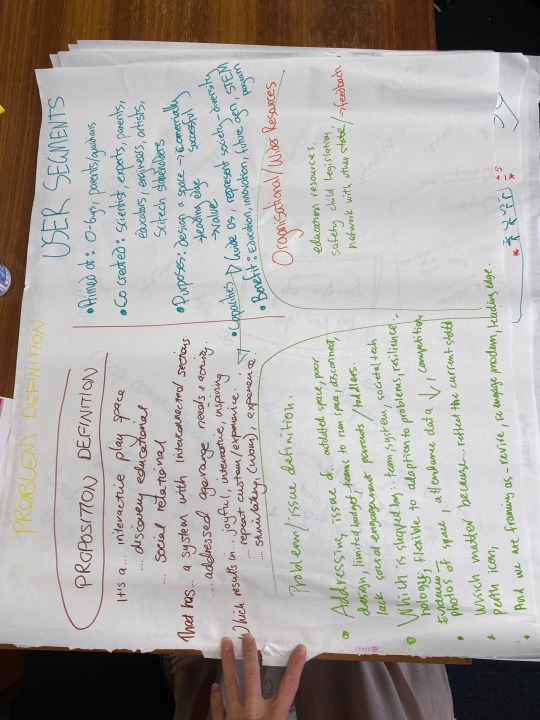 PROBLEM DEFINITION
PROPOSITION DEFINITION
It's a... interactive play space
.... discovery educational
.... social relational
That has... a system with interconnected sections
... addressed age range needs & activity.
Which results in... joyful, interactive, inspiring
... repeat custom/experience.
... stimulating, (wow) experience.
USER SEGMENTS
• Aimed at: 0-6ys, parents/guardians
• Co created: scientist, experts, parents,
educators, engineers, artists,
Scitech stakeholders
• Purposes: Design a space → comercially
successful
→ leading edge
→ Value
• Capailities
wide as, represent society - diversity
• Benefit: Education, innovation, future gen, STEM
Organisational/Wider Resources
education resources,
safety child legislation,
network with other state / → feedback.
Problem/issue definition.
• Addressing, issue of... outdated space, poor
design, limited budget, team to run space, disconnect,
lack social engagement parents/todlers.
• Which is shaped by... team, system, societal, tech
hology, flexible to adaption to problems, resiliance.
Evidence
photos of space, attendance data ↓, competition,
• Which matter because... reflect the current state
• Perth icon,
• And we are framing as - revive, re engage modern, leading edge.